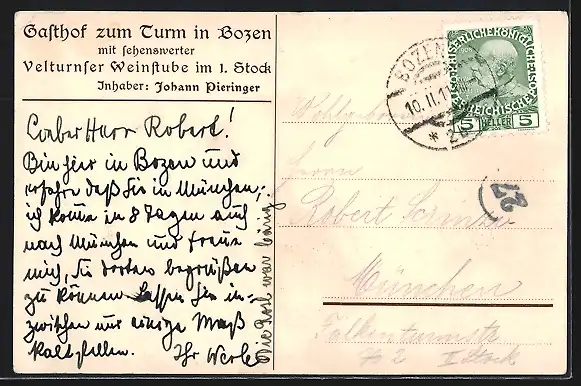 Gasthof zum Turm in Bozen
mit sehenswerter
Velturnser Weinstube im 1. Stock
Inhaber: Johann Pieringer
Lieber Herr Robert!
Bin hier in Bozen und
erfahre daß Sie in München,
ich komme in 8 Tagen auch
nach München und freue
mich, Sie dorten begrüßen
zu können. Lassen Sie in-
zwischen nur einige Maß
kaltstellen. Ihr
Die Post war
BOZEN
10. II. 11
* 2
KAISERLICHE KÖNIGLICHE
ÖSTERREICHISCHE POST
5 HELLER 5
27
Wohlgeboren
Herrn
Robert
München
II Stock